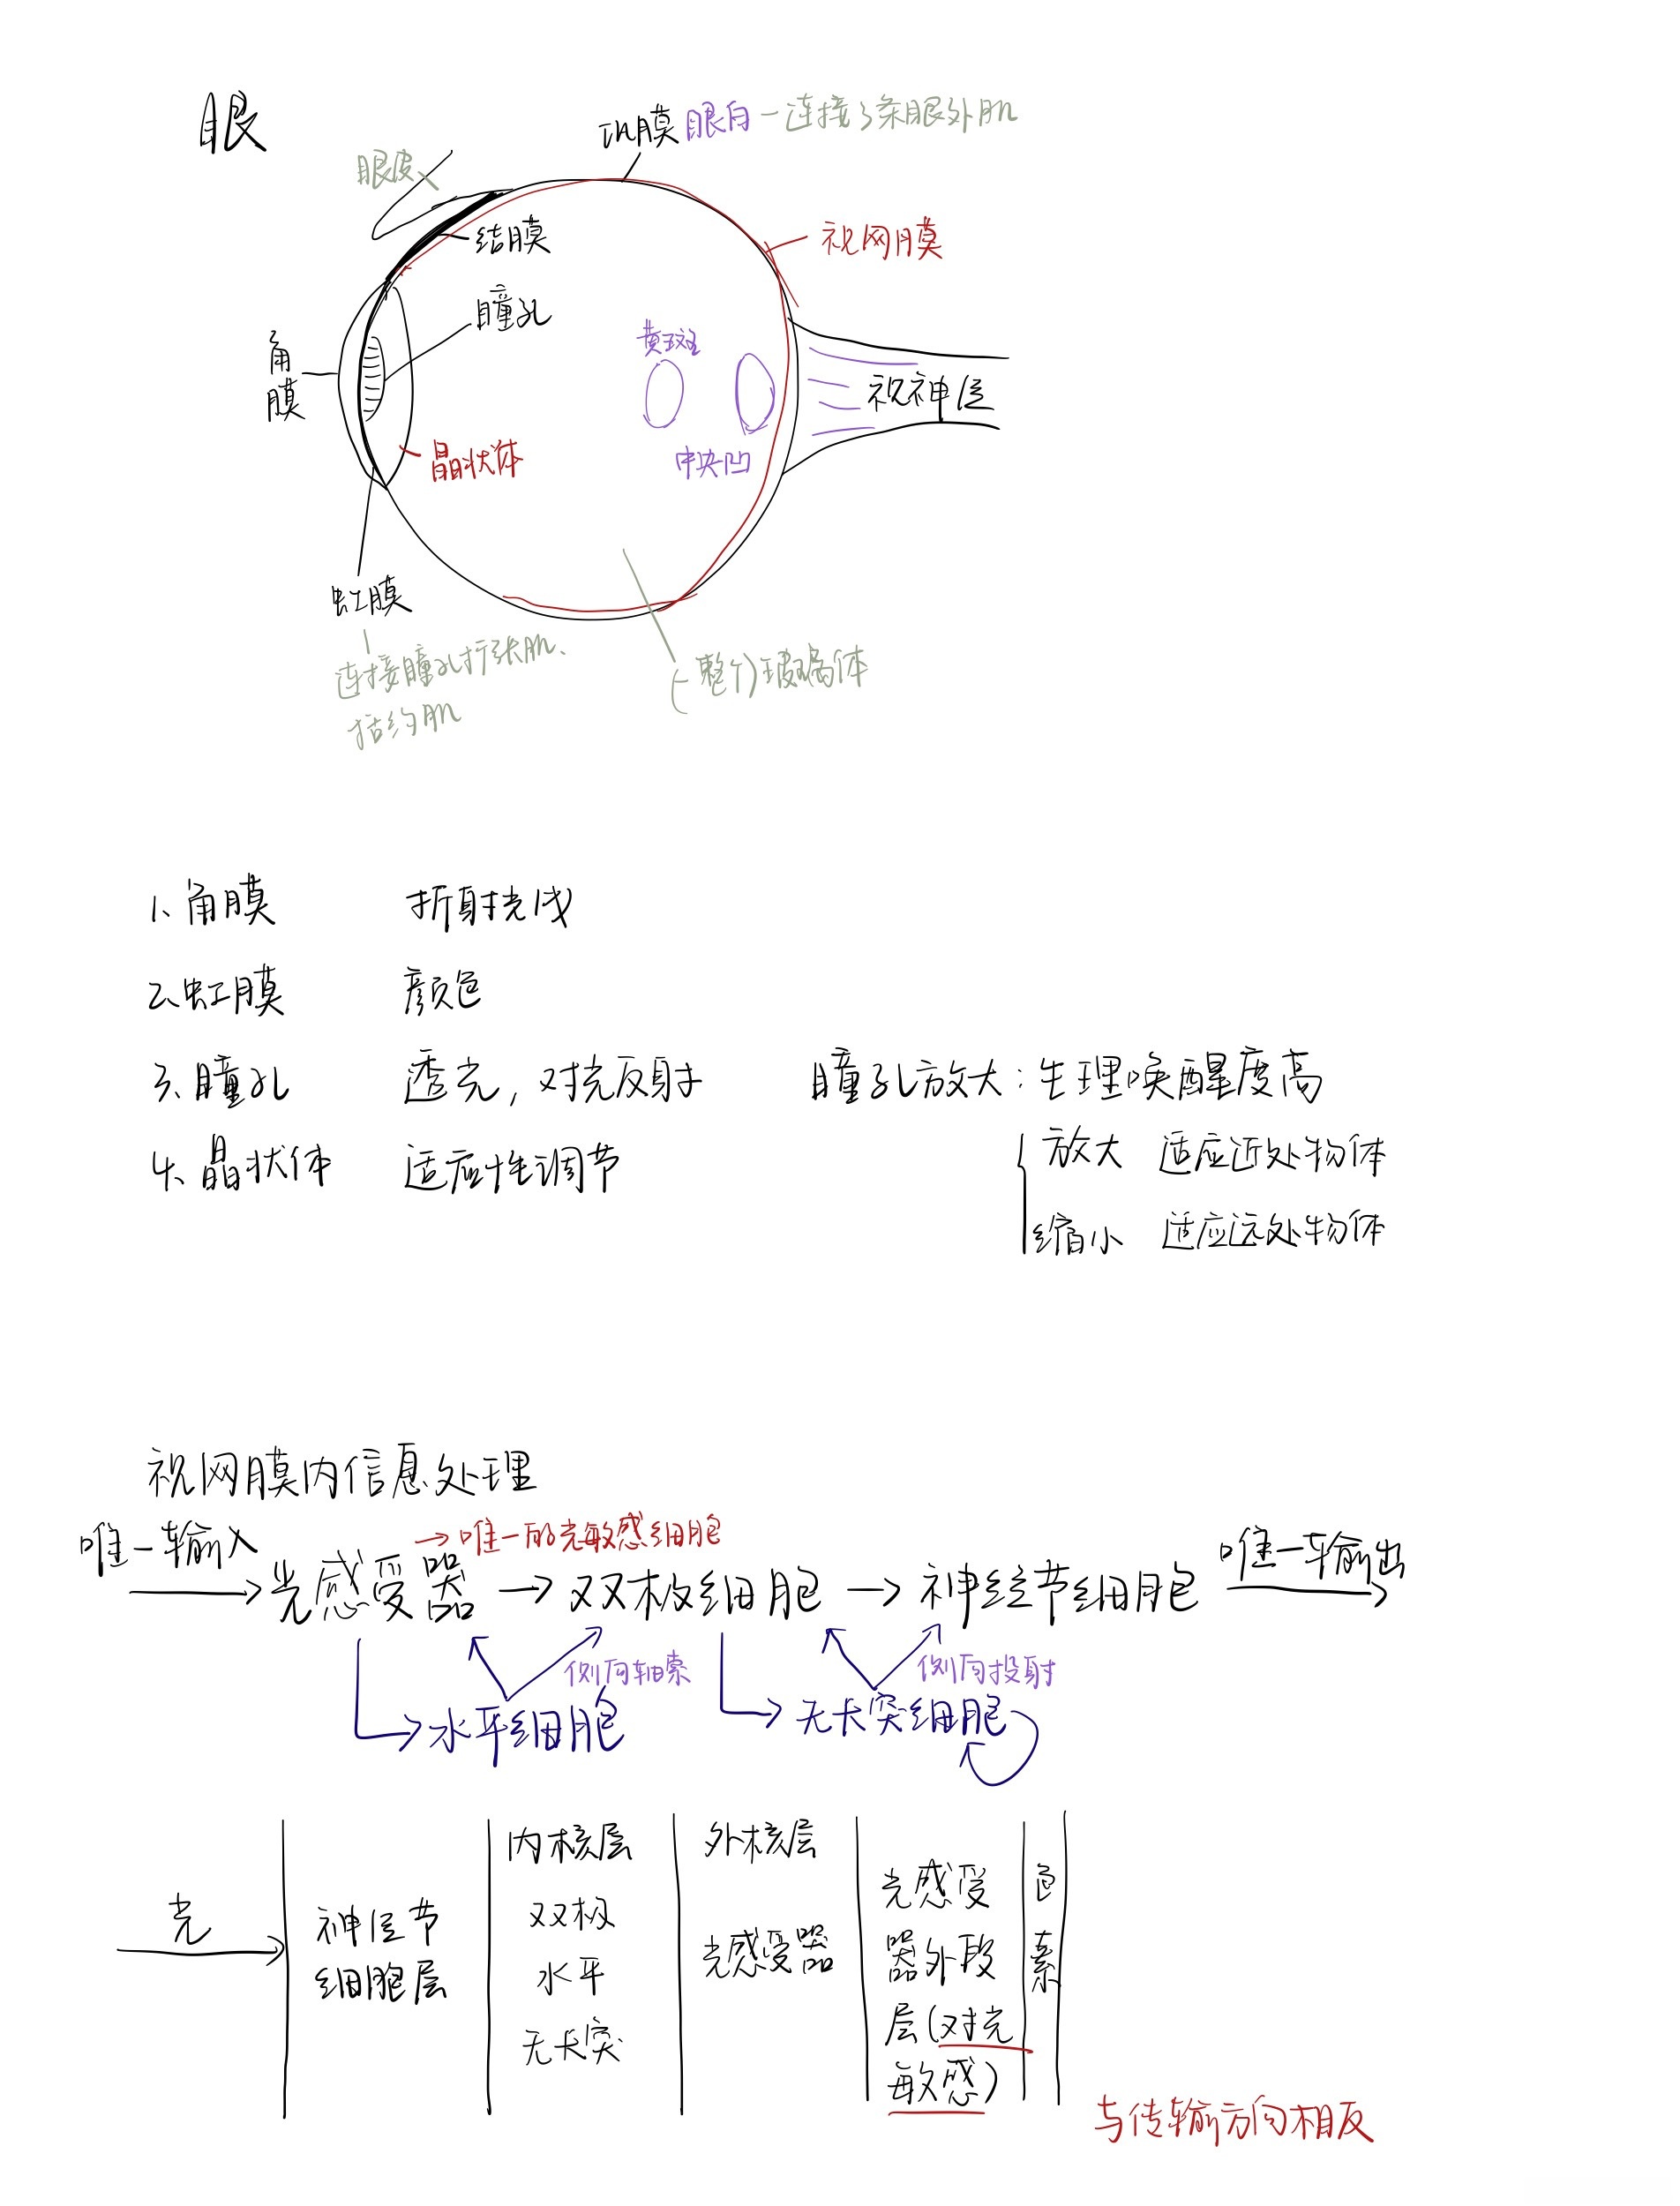 眼
巩膜 眼白 - 连接3条眼外肌
眼皮
结膜
视网膜
瞳孔
角膜
黄斑
视神经
晶状体
中央凹
虹膜
连接瞳孔扩张肌、
括约肌
(整个)玻璃体
1、角膜 折射光线
2、虹膜 颜色
3、瞳孔 透光，对光反射 瞳孔放大：生理唤醒度高
4、晶状体 适应性调节 放大 适应近处物体
缩小 适应远处物体
视网膜内信息处理
→唯一的光敏感细胞
唯一输入 → 光感受器 → 双极细胞 → 神经节细胞 唯一输出 →
侧向轴索 侧向投射
水平细胞 无长突细胞
内核层 外核层
光 → 神经节 双极 光感受器 光感受 色
细胞层 水平 器外段 素
无长突 层(对光
敏感)
与传输方向相反